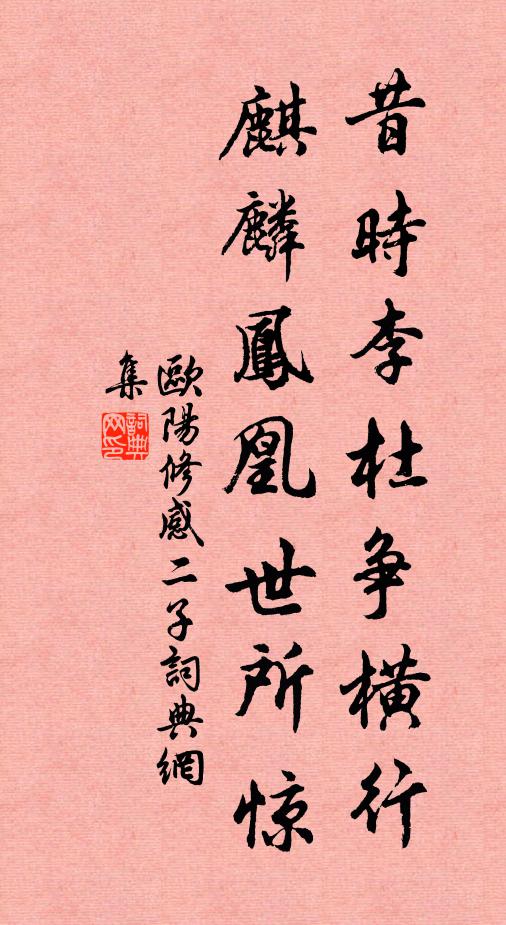 昔時李杜争横行
麒麟鳳凰世所惊
歐陽修感二子詞典網
集
詞典
网印